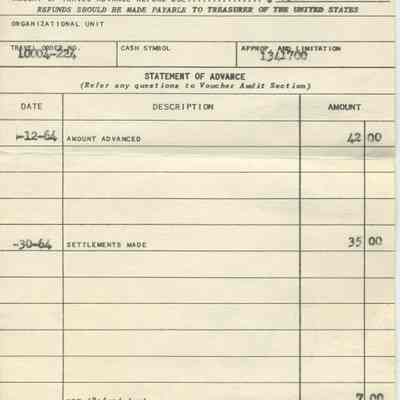 REFUNDS SHOULD BE MADE PAYABLE TO TREASURER OF THE UNITED STATES
ORGANIZATIONAL UNIT
TRAVEL ORDER NO. CASH SYMBOL APPROP. AND LIMITATION
10004-224 134/1700
STATEMENT OF ADVANCE
(Refer any questions to Voucher Audit Section)
DATE DESCRIPTION AMOUNT
-12-64 AMOUNT ADVANCED 42 00
-30-64 SETTLEMENTS MADE 35 00
7 00